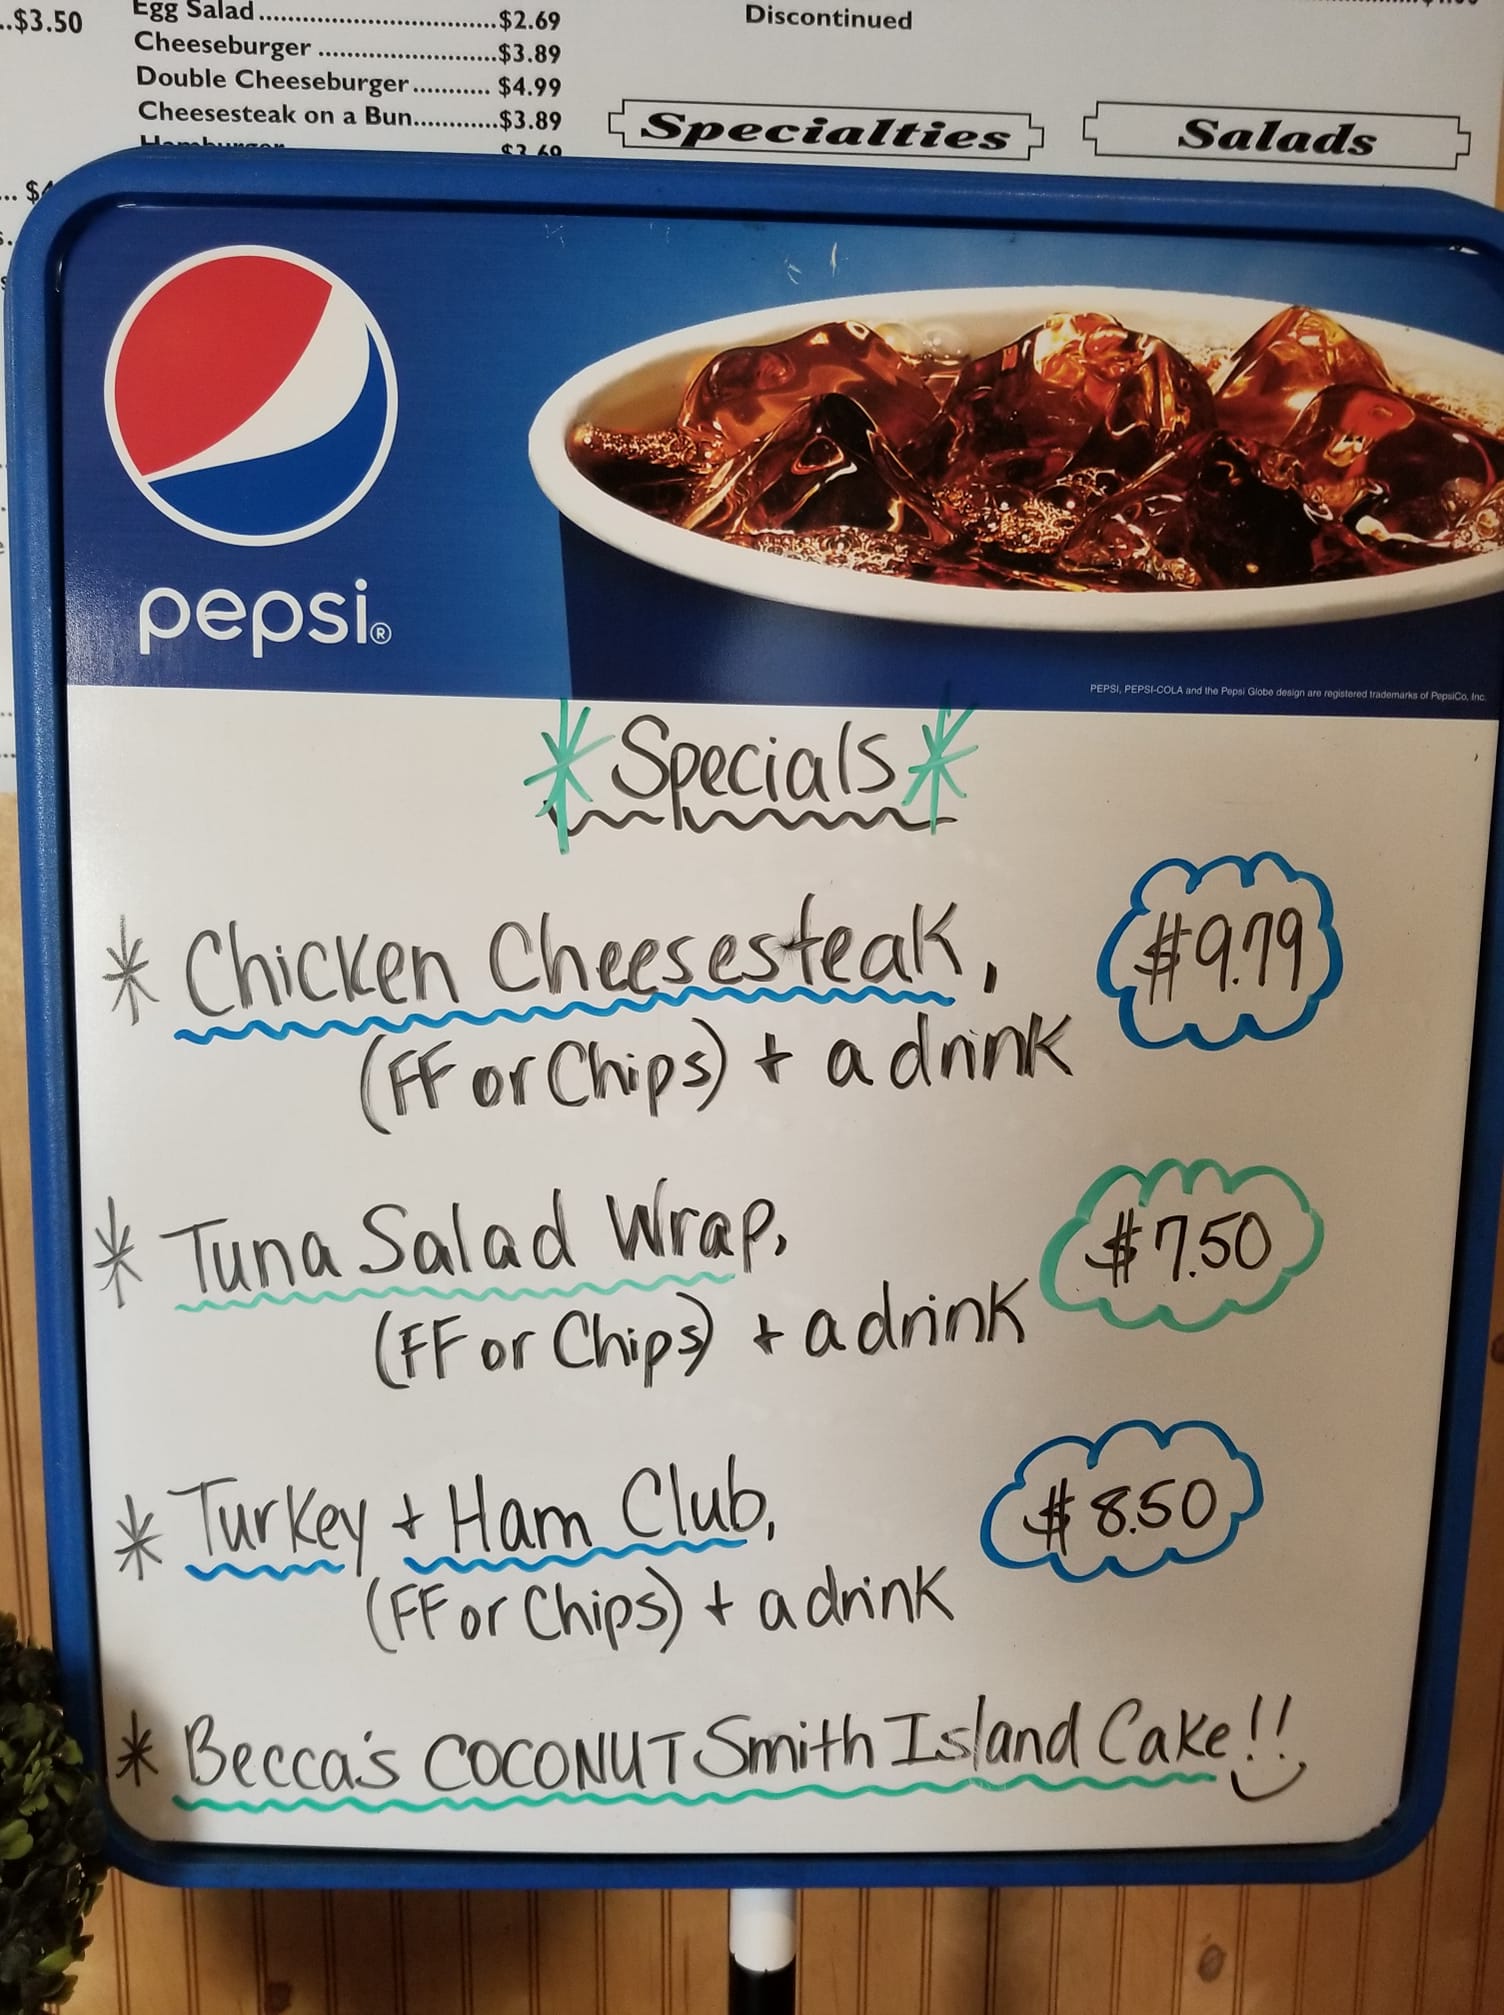 ..$3.50
Egg Salad..................................$2.69
Cheeseburger ..........................$3.89
Double Cheeseburger........... $4.99
Cheesesteak on a Bun............$3.89
Discontinued
Specialties
Salads
pepsi®
PEPSI, PEPSI-COLA and the Pepsi Globe design are registered trademarks of PepsiCo, Inc.
*Specials*
* Chicken Cheesesteak, $9.79
(FF or Chips) + a drink
* Tuna Salad Wrap, $7.50
(FF or Chips) + a drink
* Turkey + Ham Club, $8.50
(FF or Chips) + a drink
* Becca's COCONUT Smith Island Cake!!